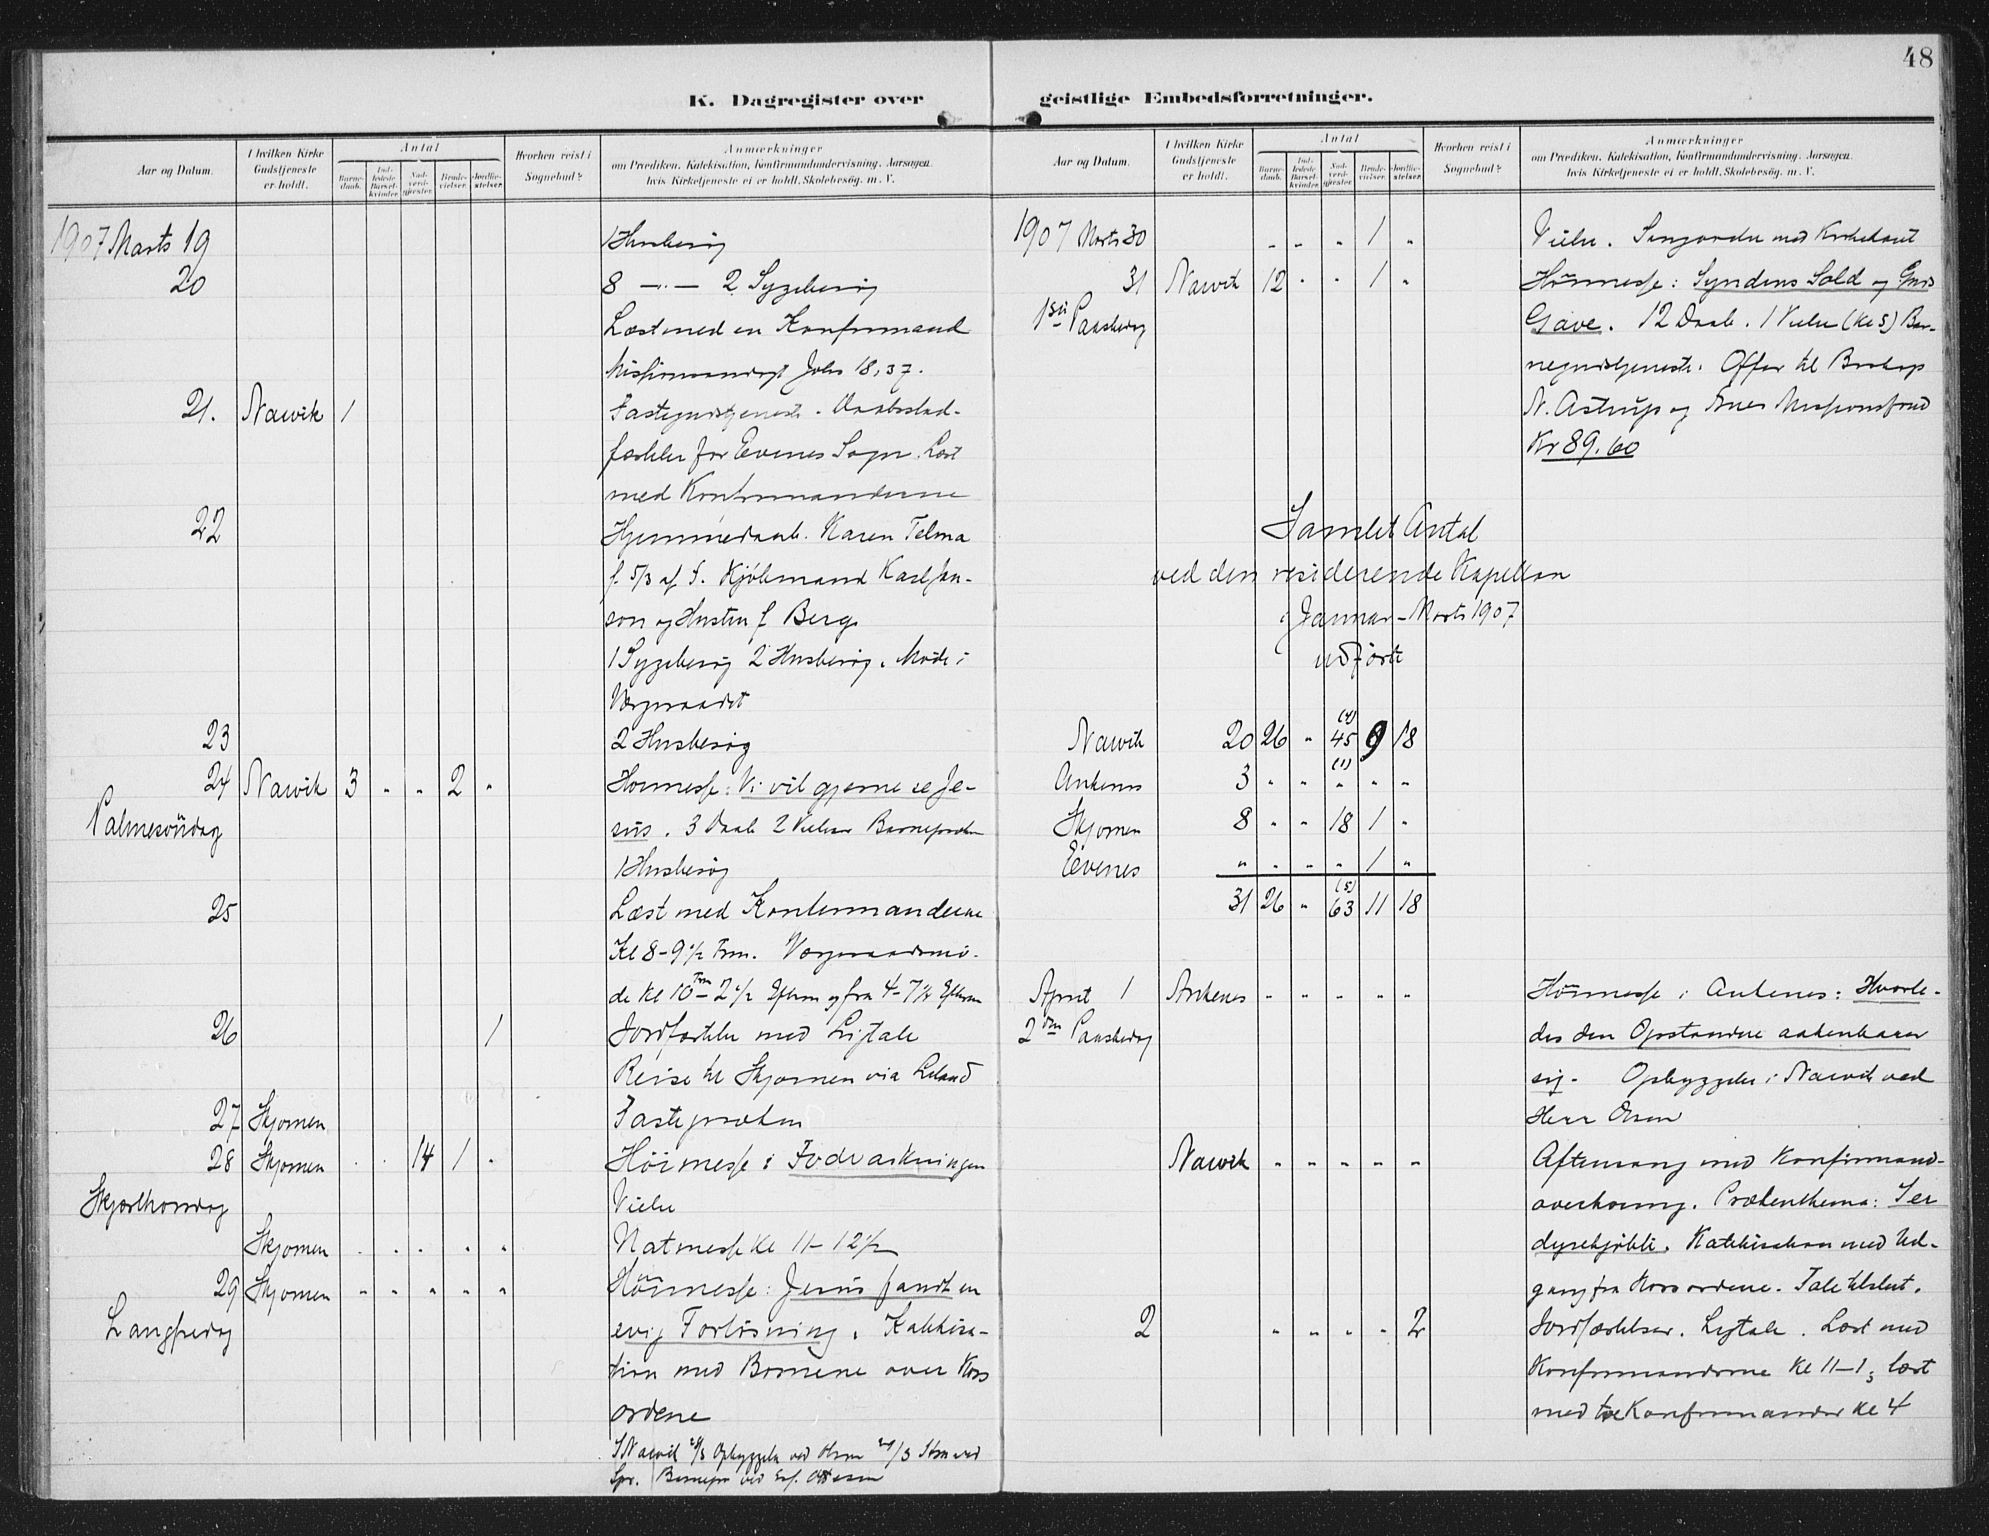 48
K. Dagregister over
Aar og Datum.
I hvilken Kirke Gudstjeneste er holdt.
Antal
Barnedaab.
Indledede Barselkvinder.
Nadverdgjester.
Brudevielser.
Jordfæstelser.
Hvorhen reist i Sognebud?
Anmærkninger
om Prædiken, Katekisation, Konfirmandundervisning, Aarsagen,
hvis Kirketjeneste ei er holdt, Skolebesøg. m. V.
1907 Marts 19 1 Husbesøg
20 8 — " — 2 Sygebesøg
Læst med en Konfirmand
Missionsandagt Johs 18,37.
21. Narvik 1 Fastegudstjeneste. Daabs
for Evenes Sogn. Læst
med Konfirmanderne
22 Hjemmedaab. Karen Telma
f. 5/3 af F. Kjøbmand Karl Jan-
son og Hustru f Berg.
1 Sygebesøg 2 Husbesøg. Møde i
Vergeraadet
23 2 Husbesøg
24 Narvik 3 " " 2 " Høimesse: Vi vil gjerne se Je-
Palmesøndag sus. 3 Daab 2 Vielser Barnepræken
1 Husbesøg
25 Læst med Konfirmanderne
Kl 8-9 1/2 Frm. Vergeraadsmø-
de Kl 10 Frm - 2 1/2 Efterm og fra 4-7 1/2 Efterm
26 1 Jordfæstelse med Ligtale
Reise til Skjomen via Leland
27 Skjomen Fastepræken
28 Skjomen " " 14 1 " Høimesse: Fodvaskningen
Skjærthorsdag Vielse
Skjomen " " " " " Natmesse Kl 11-12 1/2
29 Skjomen " " " " " Høimesse: Jesus fandt en
Langfredag evig Forløsning. Katekisa-
tion med Børnene over Kors
ordene
I Narvik 28/3 Opbyggelse ved Olsen 29/3 ved
Spr. Barnepr ved
geistlige Embedsforretninger.
Aar og Datum.
I hvilken Kirke Gudstjeneste er holdt.
Antal
Barnedaab.
Indledede Barselkvinder.
Nadverdgjester.
Brudevielser.
Jordfæstelser.
Hvorhen reist i Sognebud?
Anmærkninger
om Prædiken, Katekisation, Konfirmandundervisning, Aarsagen,
hvis Kirketjeneste ei er holdt, Skolebesøg. m. V.
1907 Marts 30 " " " 1 " Vielse. Samvær med
31 Narvik 12 " " 1 " Høimesse: Syndens Sold og Guds
1ste Paaskedag Gave. 12 Daab. 1 Vielse (Kl 5) Bar-
negudstjeneste. Offer til Biskop
N. Astrup og Missionsfond
Kr 89.60
Samlet Antal
ved den residerende Kapellan
i Januar - Marts 1907
udførte
Narvik 20 26 " (4) 45 9 18
Ankenes 3 " " (1) " " "
Skjomen 8 " " 18 1 "
Evenes " " " " 1 "
31 26 " (5) 63 11 18
April 1 Ankenes " " " " " Høimesse i Ankenes: Hvorle-
2den Paaskedag des den Opstandne aabenbarer
sig. Opbyggelse i Narvik ved
Herr Olsen
Narvik " " " " " Aftensang med Konfirmand-
overhøring. Prækenthema: I er
dyrekjøbte. Katekisation med Ud-
gang fra Korsordene. Tale tilslut.
2 " " " " 2 Jordfæstelser. Ligtale. Læst med
Konfirmanderne Kl 11-1; læst
med to Konfirmander kl 4